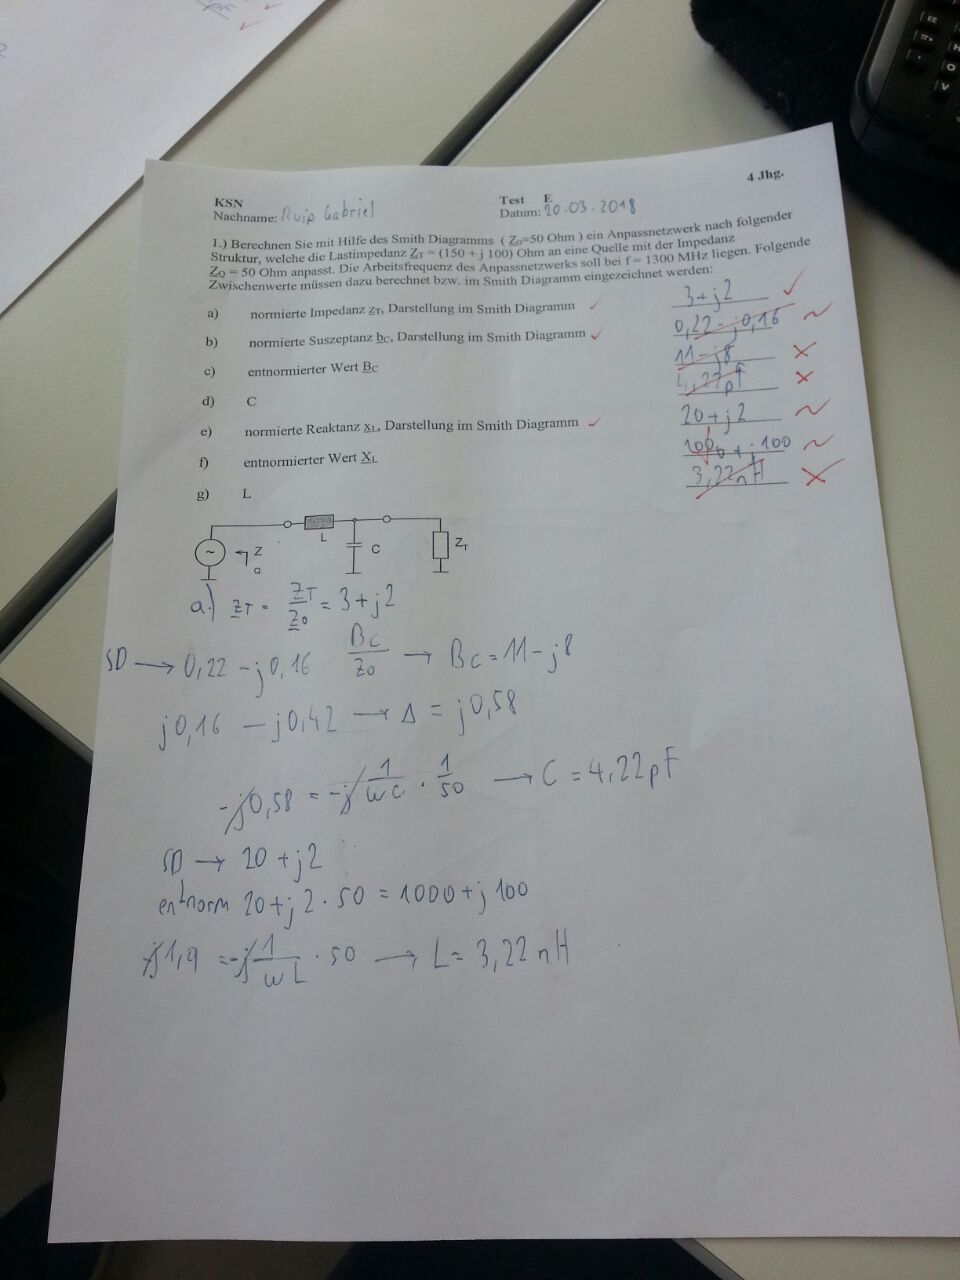 4 Jhg.
KSN
Test E
Nachname: Ruip Gabriel
Datum: 20.03.2018
1.) Berechnen Sie mit Hilfe des Smith Diagramms ( Z0=50 Ohm ) ein Anpassnetzwerk nach folgender
Struktur, welche die Lastimpedanz ZT = (150 + j 100) Ohm an eine Quelle mit der Impedanz
ZQ = 50 Ohm anpasst. Die Arbeitsfrequenz des Anpassnetzwerks soll bei f = 1300 MHz liegen. Folgende
Zwischenwerte müssen dazu berechnet bzw. im Smith Diagramm eingezeichnet werden:
a) normierte Impedanz zT, Darstellung im Smith Diagramm ✓ 3+j2 ✓
b) normierte Suszeptanz bC, Darstellung im Smith Diagramm ✓ 0,22-j0,16 ~
c) entnormierter Wert BC 11-j8 ×
d) C 4,22pF ×
e) normierte Reaktanz xL, Darstellung im Smith Diagramm ✓ 20+j2 ~
f) entnormierter Wert XL + j100 ~
g) L 3,22nH ×
L
C
ZT
~
Z
Q
a.) zT = ZT/Z0 = 3+j2
SD → 0,22 -j0,16 BC/Z0 → BC = 11-j8
j0,16 - j0,42 → Δ = j0,58
-j0,58 = -j 1/ωC · 1/50 → C = 4,22pF
SD → 20+j2
entnorm 20+j2 · 50 = 1000+j100
j1,9 = -j 1/ωL · 50 → L = 3,22 nH